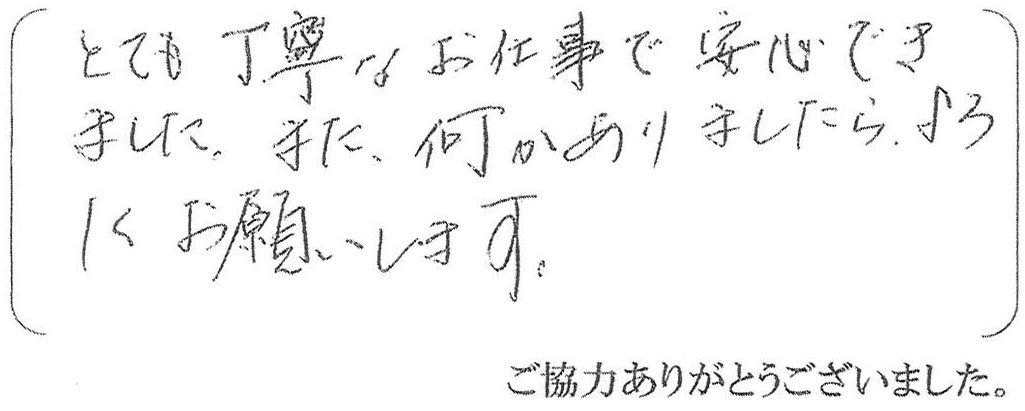 とても丁寧なお仕事で安心でき
ました。また、何かありましたら、よろ
しくお願いします。
ご協力ありがとうございました。